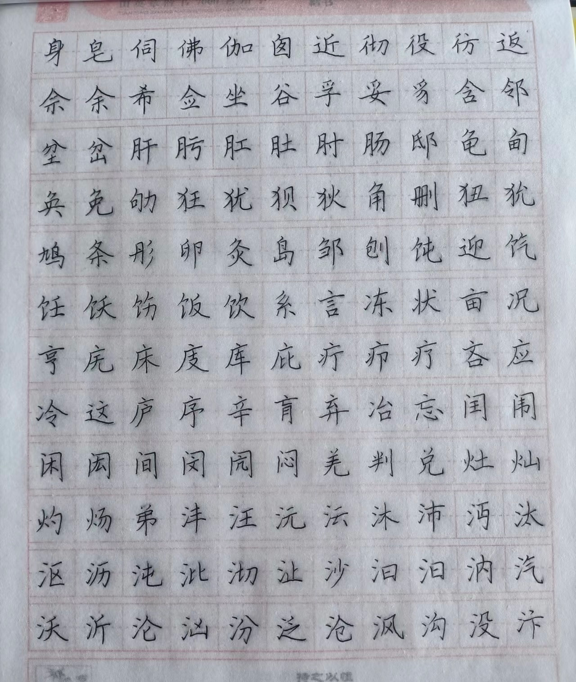 身皂伺佛伽囱近彻役彷返
佘余希佥坐谷孚妥豸含邻
坌岔肝肟肛肚肘肠邸龟甸
奂免劬狂犹狈狄角删狃狁
鸠条彤卵灸岛邹刨饨迎饩
饪饫饬饭饮系言冻状亩况
亨庑床庋库庇疔疖疗吝应
冷这庐序辛肓弃冶忘闰闱
闲闳间闵闶闷羌判兑灶灿
灼炀弟沣汪沅沄沐沛沔汰
沤沥沌沘沏沚沙汩汨汭汽
沃沂沦汹汾泛沧沨沟没汴